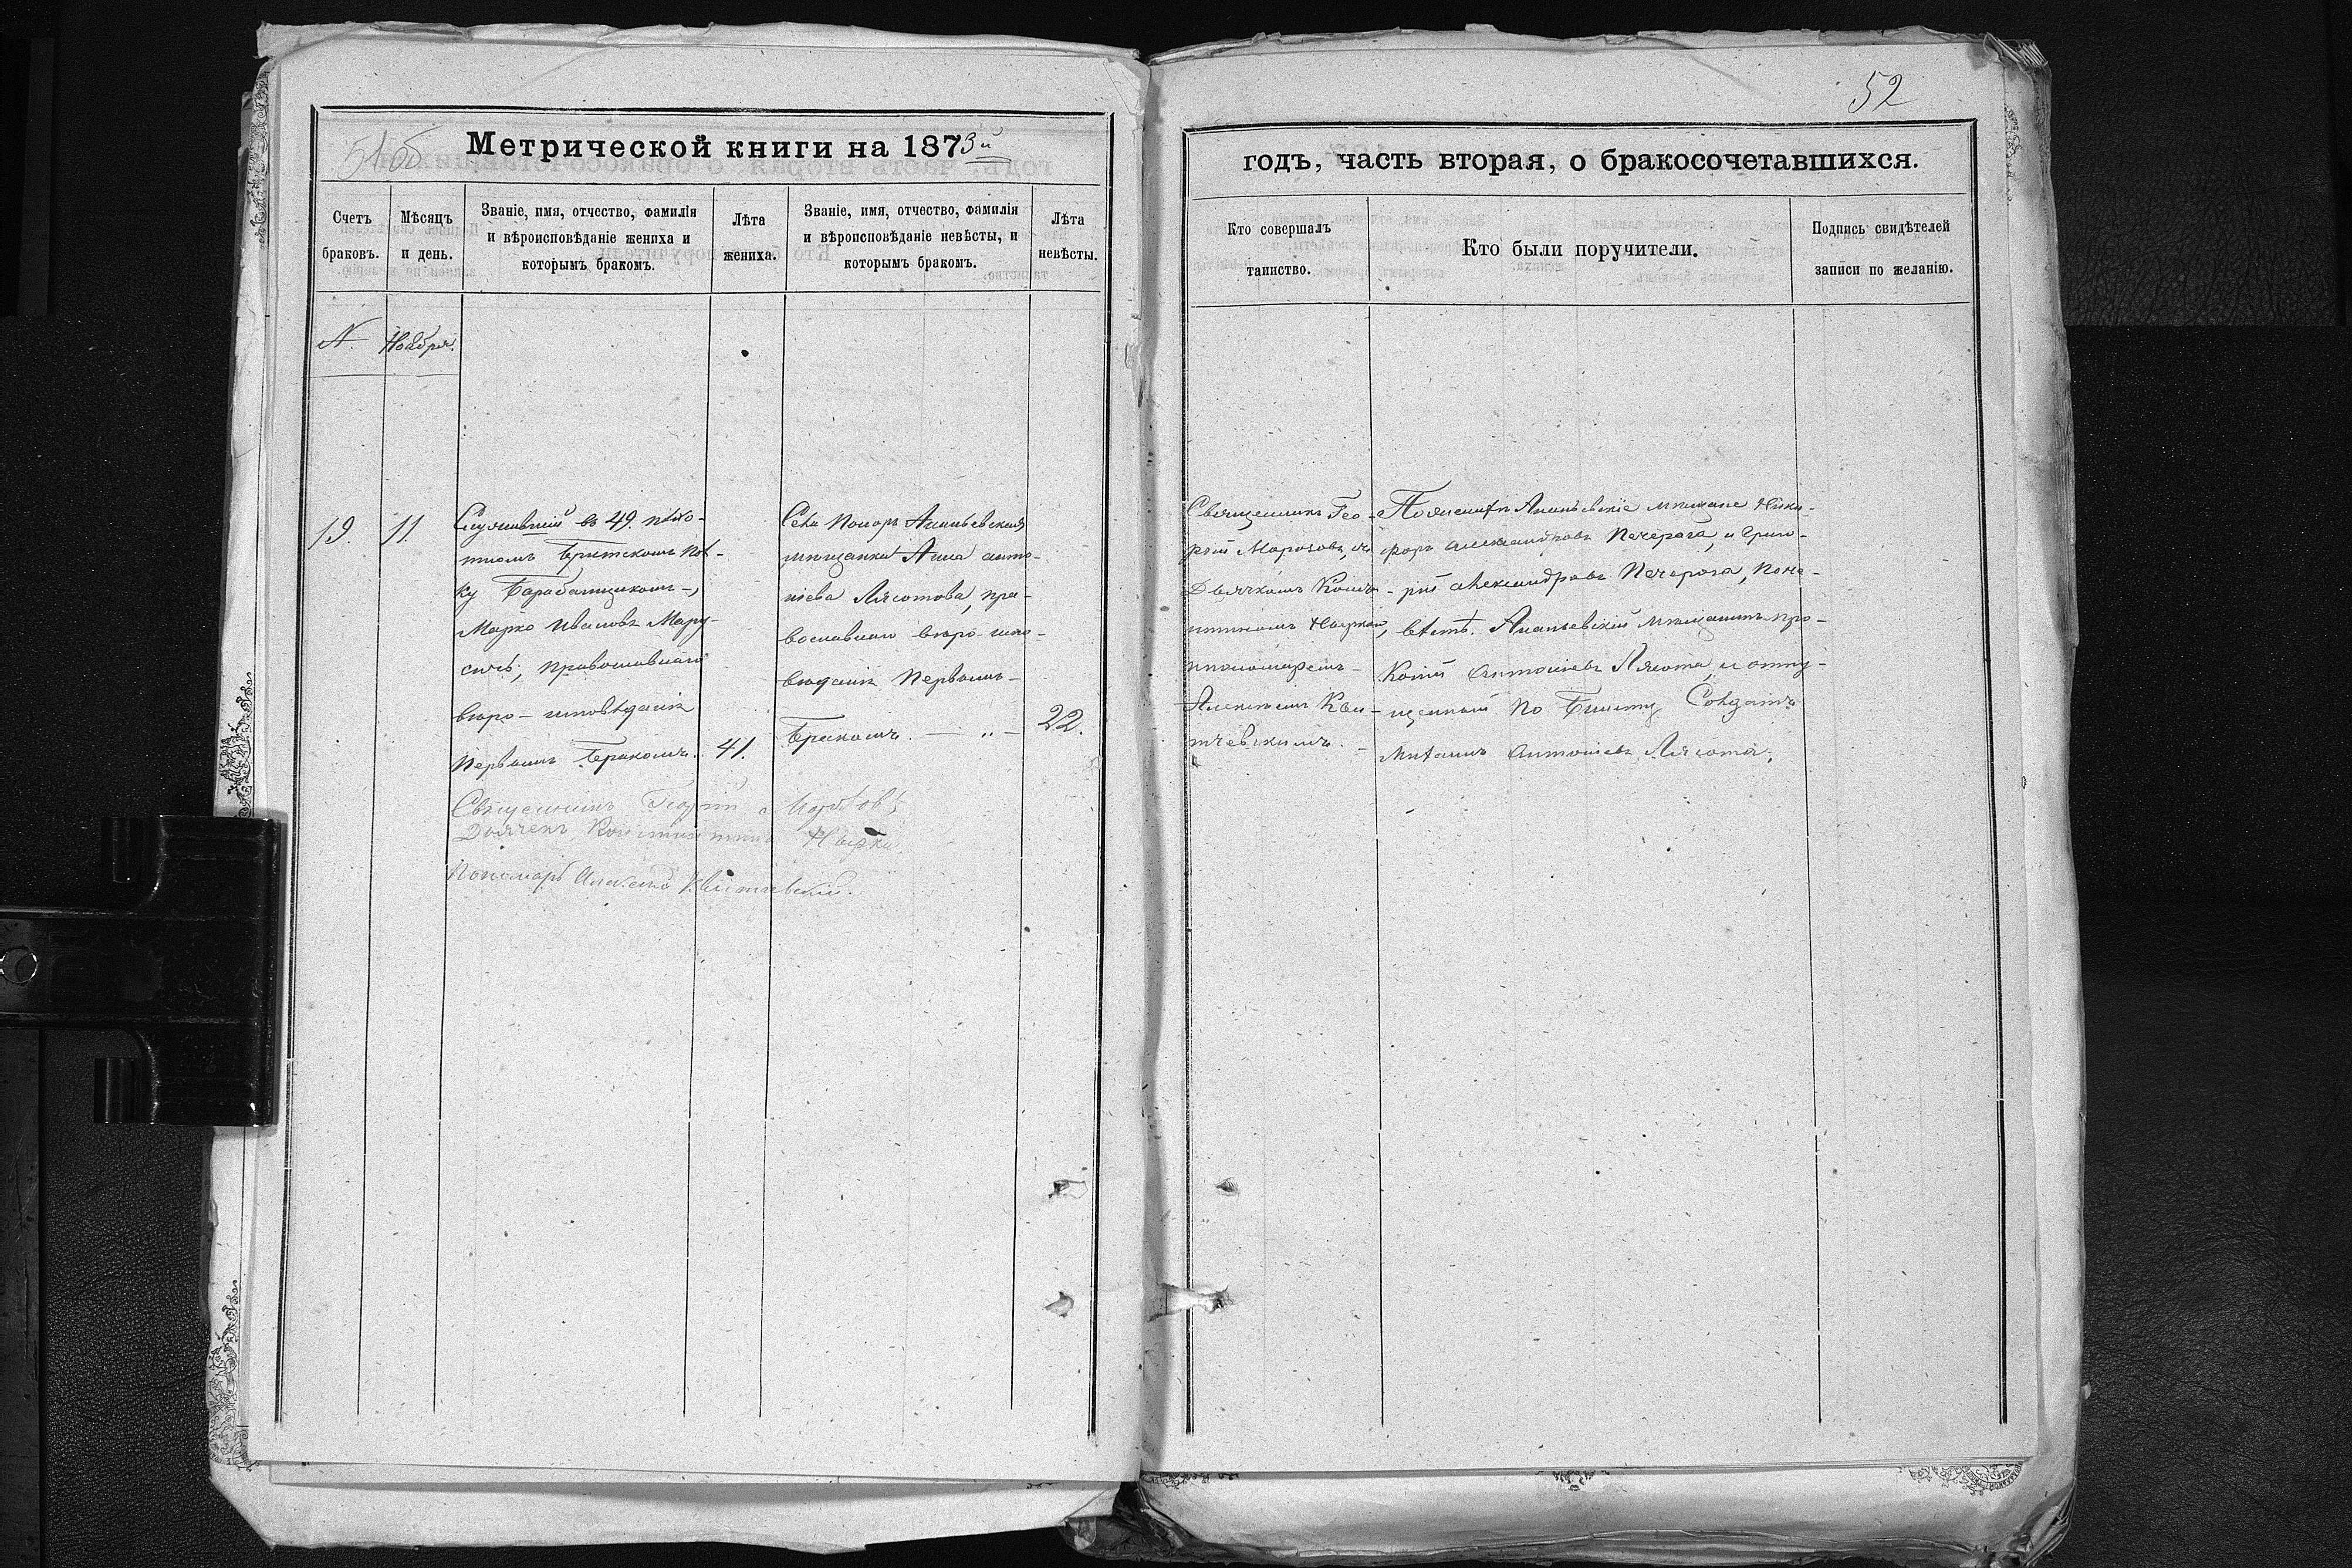 51об
Метрической книги на 1873й
Счетъ браковъ.
Мѣсяцъ и день.
Званіе, имя, отчество, фамилія и вѣроисповѣданіе жениха и которымъ бракомъ.
Лѣта жениха.
Званіе, имя, отчество, фамилія и вѣроисповѣданіе невѣсты, и которымъ бракомъ.
Лѣта невѣсты.
N. Ноября.
19. 11.
Служившій въ 49. пѣхо-
тномъ Брестскомъ пол-
ку Барабанщикомъ,
Марко Ивановъ Мару-
сичъ, православнаго
вѣро-исповѣданія
Первымъ Бракомъ. 41.
Ананьевская
мѣщанка Анна Анто-
нiева Лясотова, пра-
вославнаго вѣро-испо-
вѣданія Первымъ-
Бракомъ. — „ — 22.
Священникъ Георгій Морозовъ
Дьячекъ Константинъ
Пономарь Алексѣй
52
годъ, часть вторая, о бракосочетавшихся.
Кто совершалъ таинство.
Кто были поручители.
Подпись свидѣтелей записи по желанію.
Священникъ Гео-
ргій Морозовъ, съ
Дьячкомъ Конста-
нтиномъ
пономаремъ-
Алексѣемъ Кви-
тчевскимъ. -
По женихѣ Ананьевскіе мѣщане Ники-
форъ Александровъ Печерога, и Григо-
рій Александровъ Печерога, по не-
вѣстѣ. Ананьевскій мѣщанинъ Про-
копій Антоніевъ Лясота, и отпу-
щенный по Билету Солдатъ
Антоніевъ Лясота.